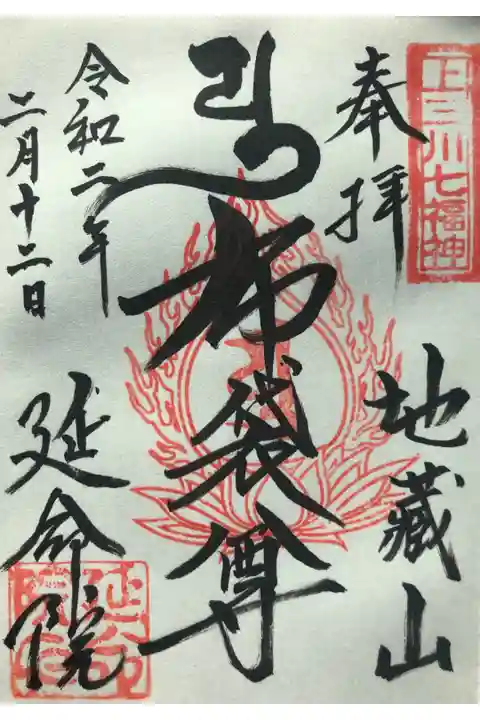 奉拝
下三川七福神
地蔵山
布袋尊
令和二年
二月十二日
延命院
延命院